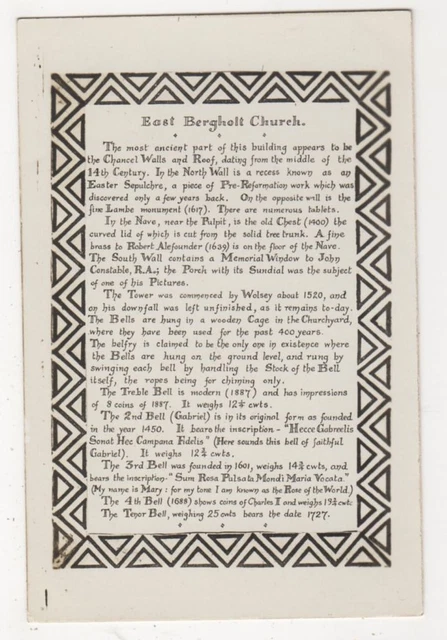 East Bergholt Church.
The most ancient part of this building appears to be
the Chancel Walls and Roof, dating from the middle of the
14th Century. In the North Wall is a recess known as an
Easter Sepulchre, a piece of Pre-Reformation work which was
discovered only a few years back. On the opposite wall is the
fine Lambe monument (1617). There are numerous tablets.
In the Nave, near the Pulpit, is the old Chest (1400) the
curved lid of which is cut from the solid tree trunk. A fine
brass to Robert Alefounder (1639) is on the floor of the Nave.
The South Wall contains a Memorial Window to John
Constable, R.A.; the Porch with its Sundial was the subject
of one of his Pictures.
The Tower was commenced by Wolsey about 1520, and
on his downfall was left unfinished, as it remains to-day.
The Bells are hung in a wooden Cage in the Churchyard,
where they have been used for the past 400 years.
The belfry is claimed to be the only one in existence where
the Bells are hung on the ground level, and rung by
swinging each bell by handling the Stock of the Bell
itself, the ropes being for chiming only.
The Treble Bell is modern (1887) and has impressions
of 8 coins of 1887. It weighs 12 cwts.
The 2nd Bell (Gabriel) is in its original form as founded
in the year 1450. It bears the inscription - "Hecce Gabreelis
Sonat Hec Campana Fidelis" (Here sounds this bell of faithful
Gabriel). It weighs 12 cwts.
The 3rd Bell was founded in 1601, weighs 14 cwts, and
bears the inscription - "Sum Rosa Pulsata Mondi Maria Vocata."
(My name is Mary: for my tone I am known as the Rose of the World.)
The 4th Bell (1688) shows coins of Charles II and weighs 19 cwt.
The Tenor Bell, weighing 25 cwts bears the date 1727.